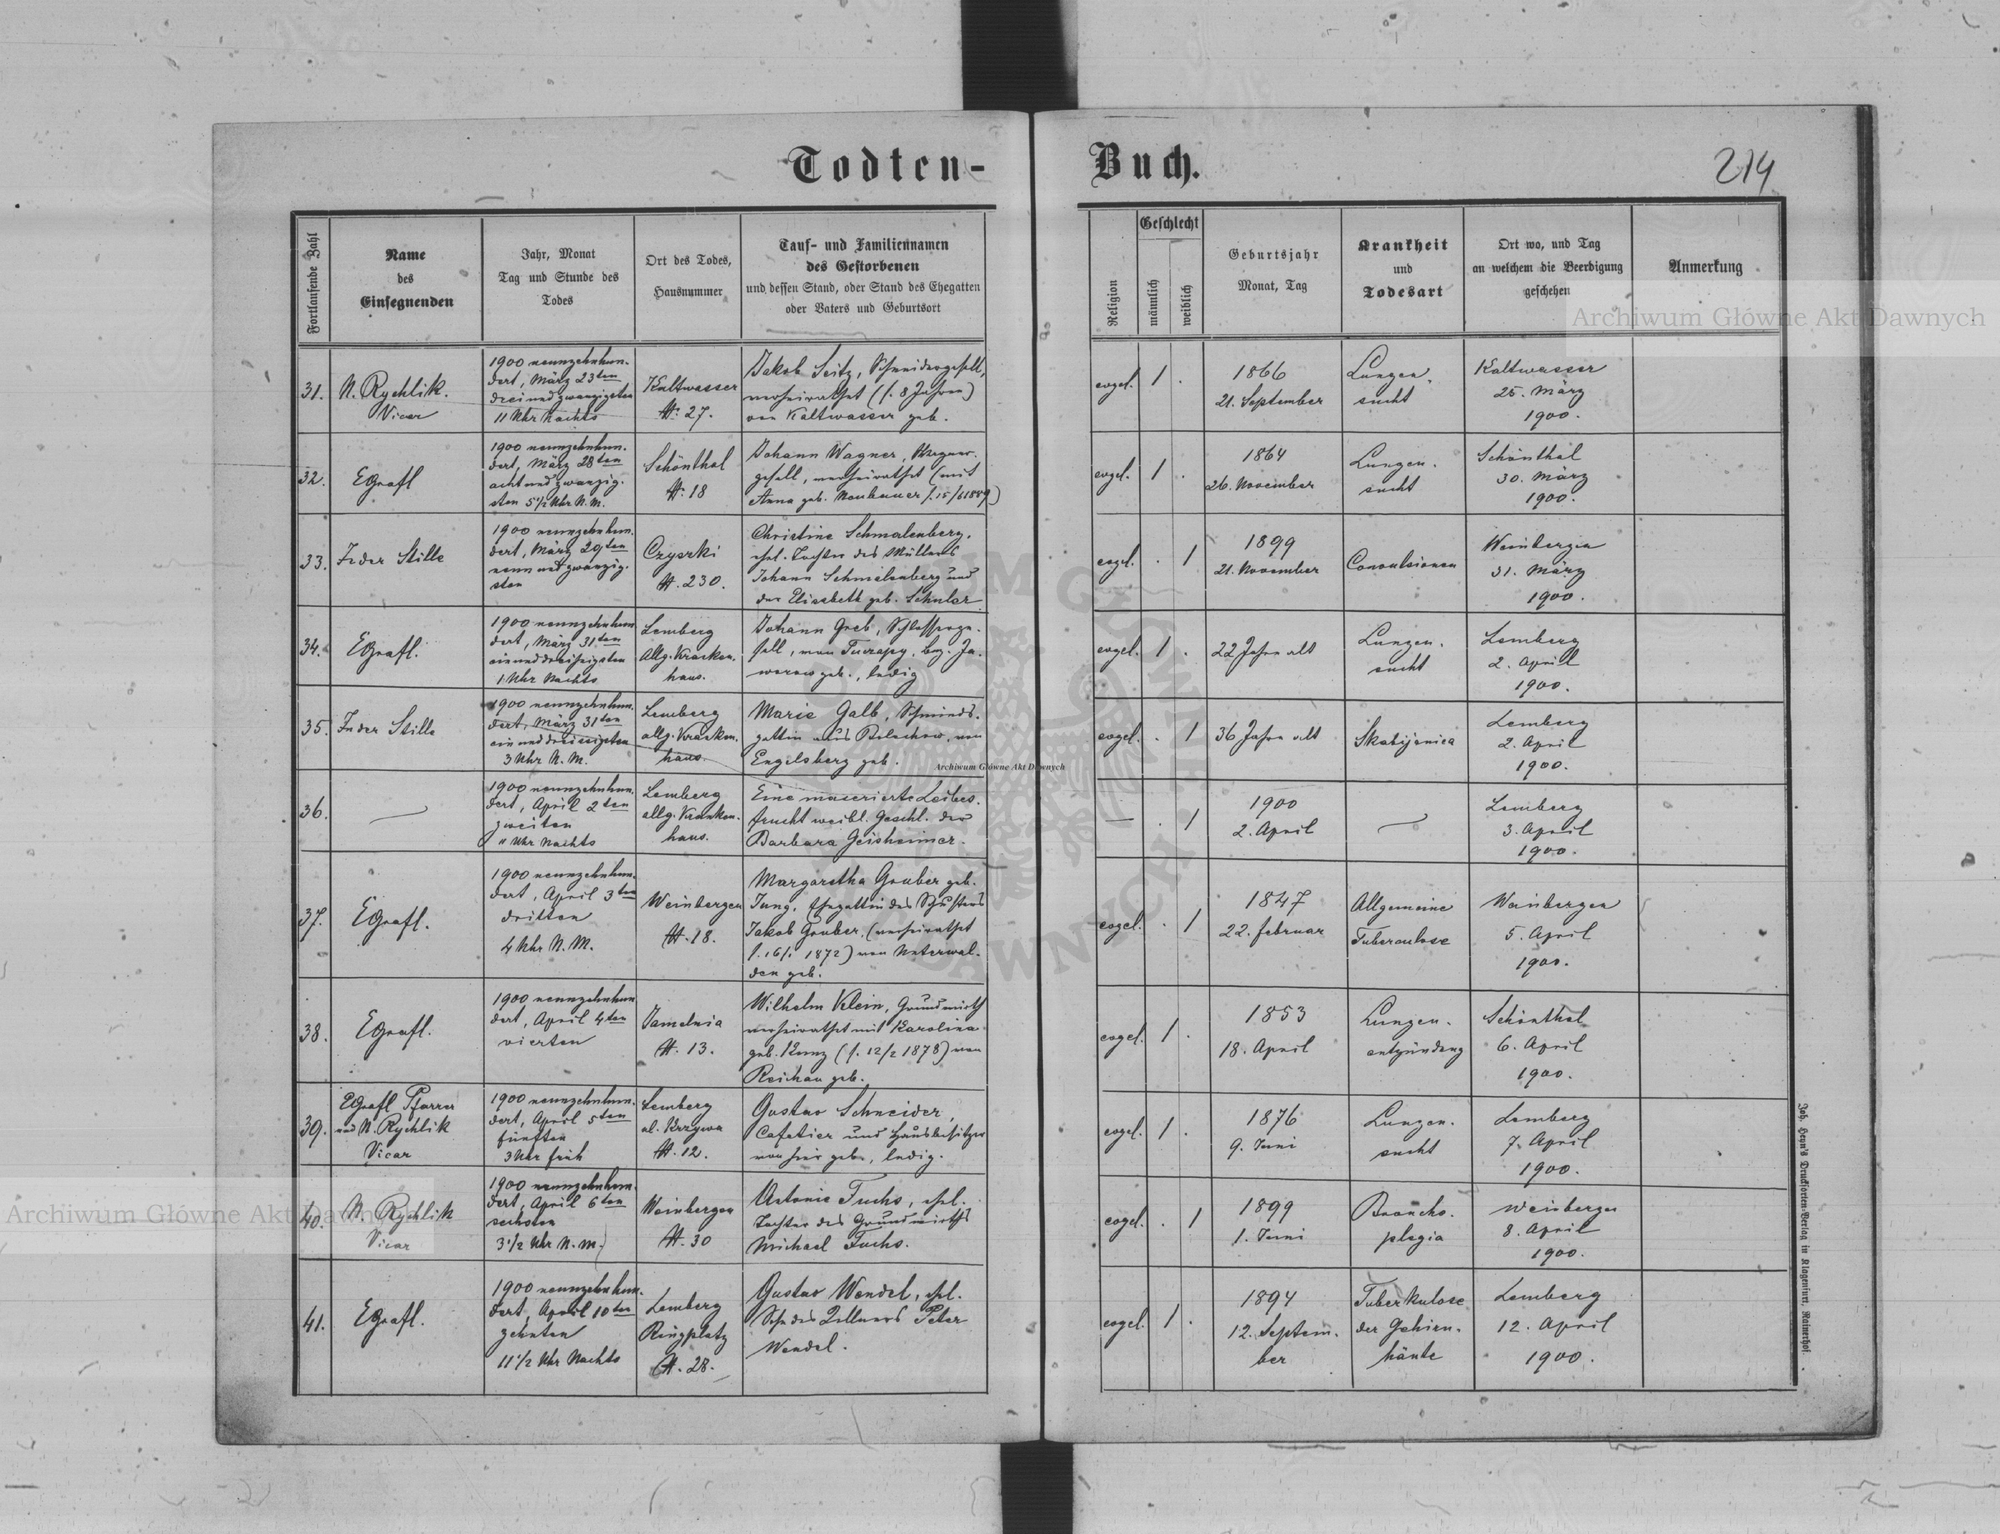 Todten-Buch.
214
Fortlaufende Zahl
Name
des
Einsegnenden
Jahr, Monat
Tag und Stunde des
Todes
Ort des Todes,
Hausnummer
Tauf- und Familiennamen
des Gestorbenen
und dessen Stand, oder Stand des Ehegatten
oder Vaters und Geburtsort
Religion
Geschlecht
männlich
weiblich
Geburtsjahr
Monat, Tag
Krankheit
und
Todesart
Ort wo, und Tag
an welchem die Beerdigung
geschehen
Anmerkung
31.
N. Rychlik.
Vicar
1900 neunzehnhun-
dert, März 23ten
dreiundzwanzigsten
11 Uhr Nachts
Kaltwasser
N. 27.
Jakob Seitz, Schneidergesell,
verheirathet (s. 8 Jahren)
von Kaltwasser geb.
evgel. 1 .
1866
21. September
Lungen-
sucht
Kaltwasser
25. März
1900.
32.
EGrafl
1900 neunzehnhun-
dert, März 28ten
achtundzwanzig-
sten 5 1/2 Uhr N.M.
Schönthal
N. 18
Johann Wagner, Wagner-
gesell, verheirathet (mit
Anna geb. Neubauer s. 15/6 1889)
evgel. 1 .
1864
26. November
Lungen-
sucht
Schönthal
30. März
1900.
33.
In der Stille
1900 neunzehnhun-
dert, März 29ten
neunundzwanzig-
sten
Czyszki
N. 230.
Christine Schmalenberg,
ehel. Tochter des Müllers
Johann Schmalenberg und
der Elisabeth geb. Schuler
evgel. . 1
1899
21. November
Convulsionen
Weinbergen
31. März
1900.
34.
EGrafl.
1900 neunzehnhun-
dert, März 31ten
einunddreissigsten
1 Uhr Nachts
Lemberg
Allg. Kranken-
haus.
Johann Greb, Schlosserge-
sell, von Tuczapy, bez. Ja-
worow geb., ledig
evgel. 1 .
22 Jahre alt
Lungen-
sucht
Lemberg
2. April
1900.
35.
In der Stille
1900 neunzehnhun-
dert, März 31ten
einunddreissigsten
3 Uhr N.M.
Lemberg
allg. Kranken-
haus.
Marie Galb, Schmieds-
gattin aus Bolechow, von
Engelsberg geb.
evgel. . 1
36 Jahre alt
Lemberg
2. April
1900.
36.
1900 neunzehnhun-
dert, April 2ten
zweiten
" Uhr Nachts
Lemberg
allg. Kranken-
haus.
Eine macerierte Leibes-
frucht weibl. Geschl. der
Barbara Geisheimer.
— . 1
1900
2. April
—
Lemberg
3. April
1900.
37.
EGrafl.
1900 neunzehnhun-
dert, April 3ten
dritten
4 Uhr N.M.
Weinbergen
N. 18.
Margaretha Gruber geb.
Jung, Ehegattin des Schusters
Jakob Gruber. (verheirathet
s. 16/1 1872) von Unterwal-
den geb.
evgel. . 1
1847
22. Februar
Allgemeine
Tuberculose
Weinbergen
5. April
1900.
38.
EGrafl.
1900 neunzehnhun-
dert, April 4ten
vierten
Jamelnia
N. 13.
Wilhelm Klein, Grundwirth
verheirathet mit Karolina
geb. Kunz (s. 12/2 1878) von
Reichau geb.
evgel. 1 .
1853
18. April
Lungen-
entzündung
Schönthal
6. April
1900.
39.
EGrafl Pfarrer
und N. Rychlik
Vicar
1900 neunzehnhun-
dert, April 5ten
fünften
3 Uhr früh
Lemberg
N. 12.
Gustav Schneider,
Cafetier und Hausbesitzer
von hier geb., ledig.
evgel. 1 .
1876
9. Juni
Lungen-
sucht
Lemberg
7. April
1900.
40.
N. Rychlik
Vicar
1900 neunzehnhun-
dert, April 6ten
sechsten
3 1/2 Uhr N.M.
Weinbergen
N. 30
Antonie Fuchs, ehel.
Tochter des Grundwirths
Michael Fuchs.
evgel. . 1
1899
1. Juni
Broncho-
plegia
Weinbergen
8. April
1900.
41.
EGrafl.
1900 neunzehnhun-
dert, April 10ten
zehnten
11 1/2 Uhr Nachts
Lemberg
Ringplatz
N. 28.
Gustav Wendel, ehel.
Sohn des Zellners Peter
Wendel.
evgel. 1 .
1894
12. Septem-
ber
Tuberkulose
der Gehirn-
häute
Lemberg
12. April
1900.
Joh. Heyn's Drucksorten-Verlag in Klagenfurt, Rainerhof.
Archiwum Główne Akt Dawnych
Archiwum Główne Akt Dawnych
Archiwum Główne Akt Dawnych